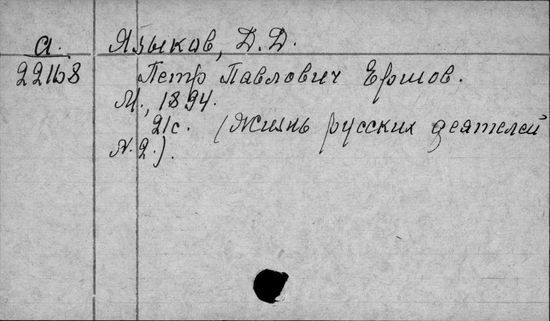 а. Языков, Д.Д.
22168 Петр Павлович Ершов.
М., 1894.
21с. (Жизнь русских деятелей
N.2.).